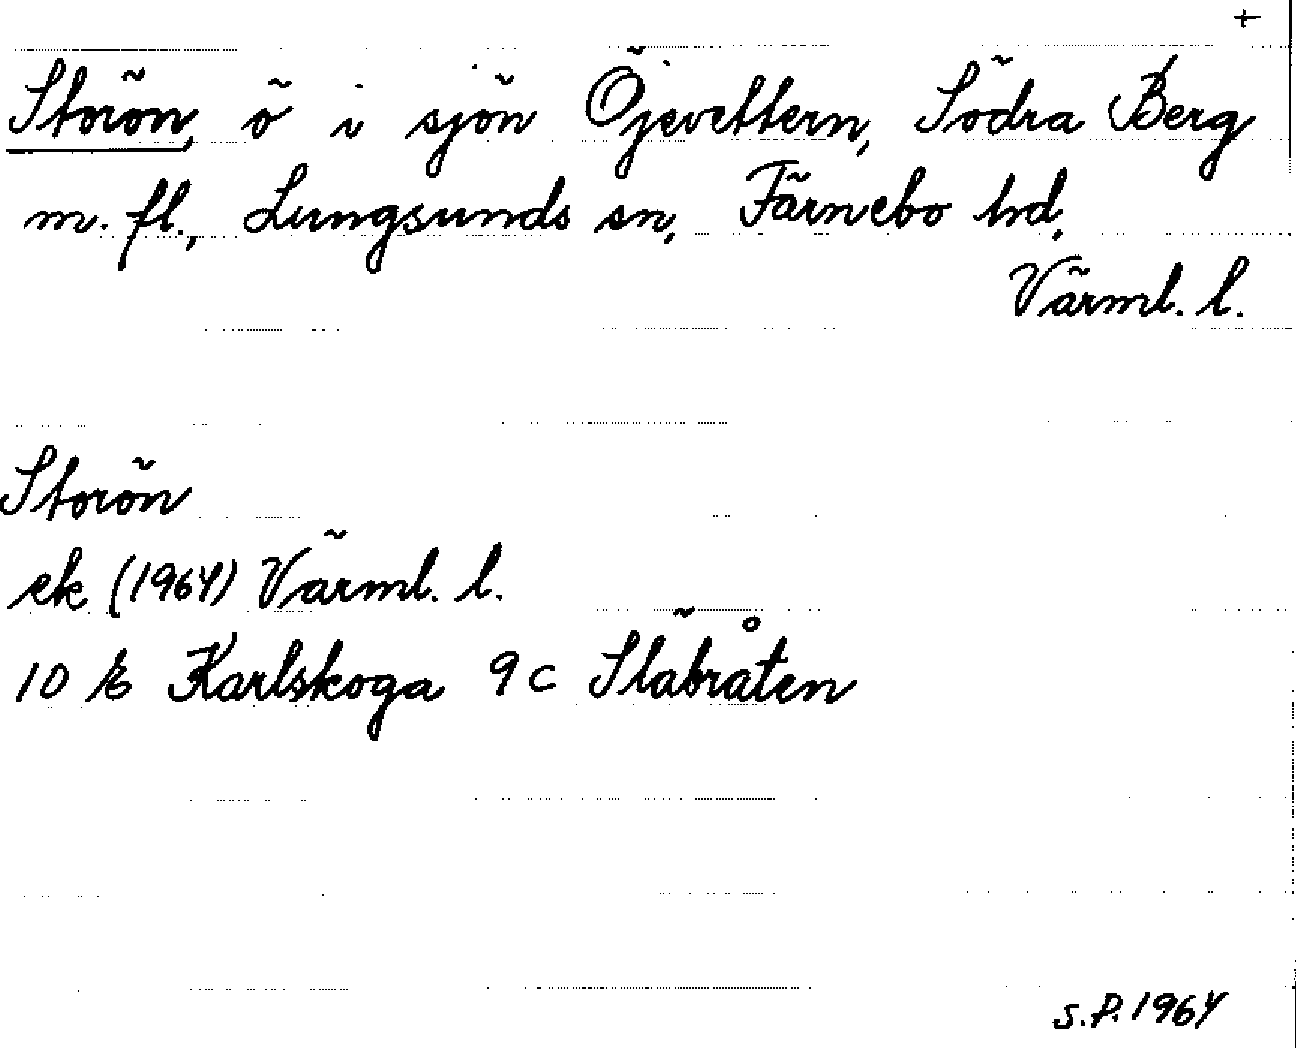 +
Storön, ö i sjön Öjevettern, Södra Berg
m. fl., Lungsunds sn, Färnebo hd,
Värml. l.
Storön
ek (1964) Värml. l.
10 E Karlskoga 9 c Släbråten
S.P. 1964